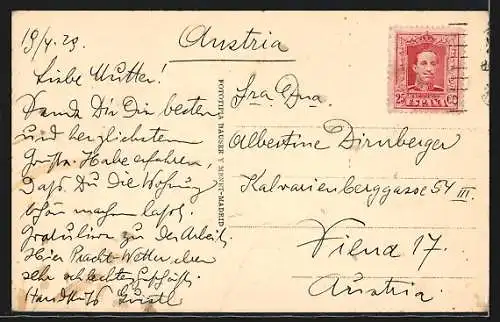 19/4.29.
Austria
Liebe Mutter!
Sende Dir Die besten
und herzlichsten
Grüße. Habe erfahren,
Daß Du Die Wohnung
schön machen laßt.
Gratuliere zu der Arbeit.
Hier Pracht-Wetter, aber
sehr schlechte Geschäft.
Handkuß Gustl
FOTOTIPIA HAUSER Y MENET.-MADRID
25
ESPAÑA
Sra Dna
Albertine Dirnberger
Kalvarienberggasse 54 III.
Viena 17.
Austria.